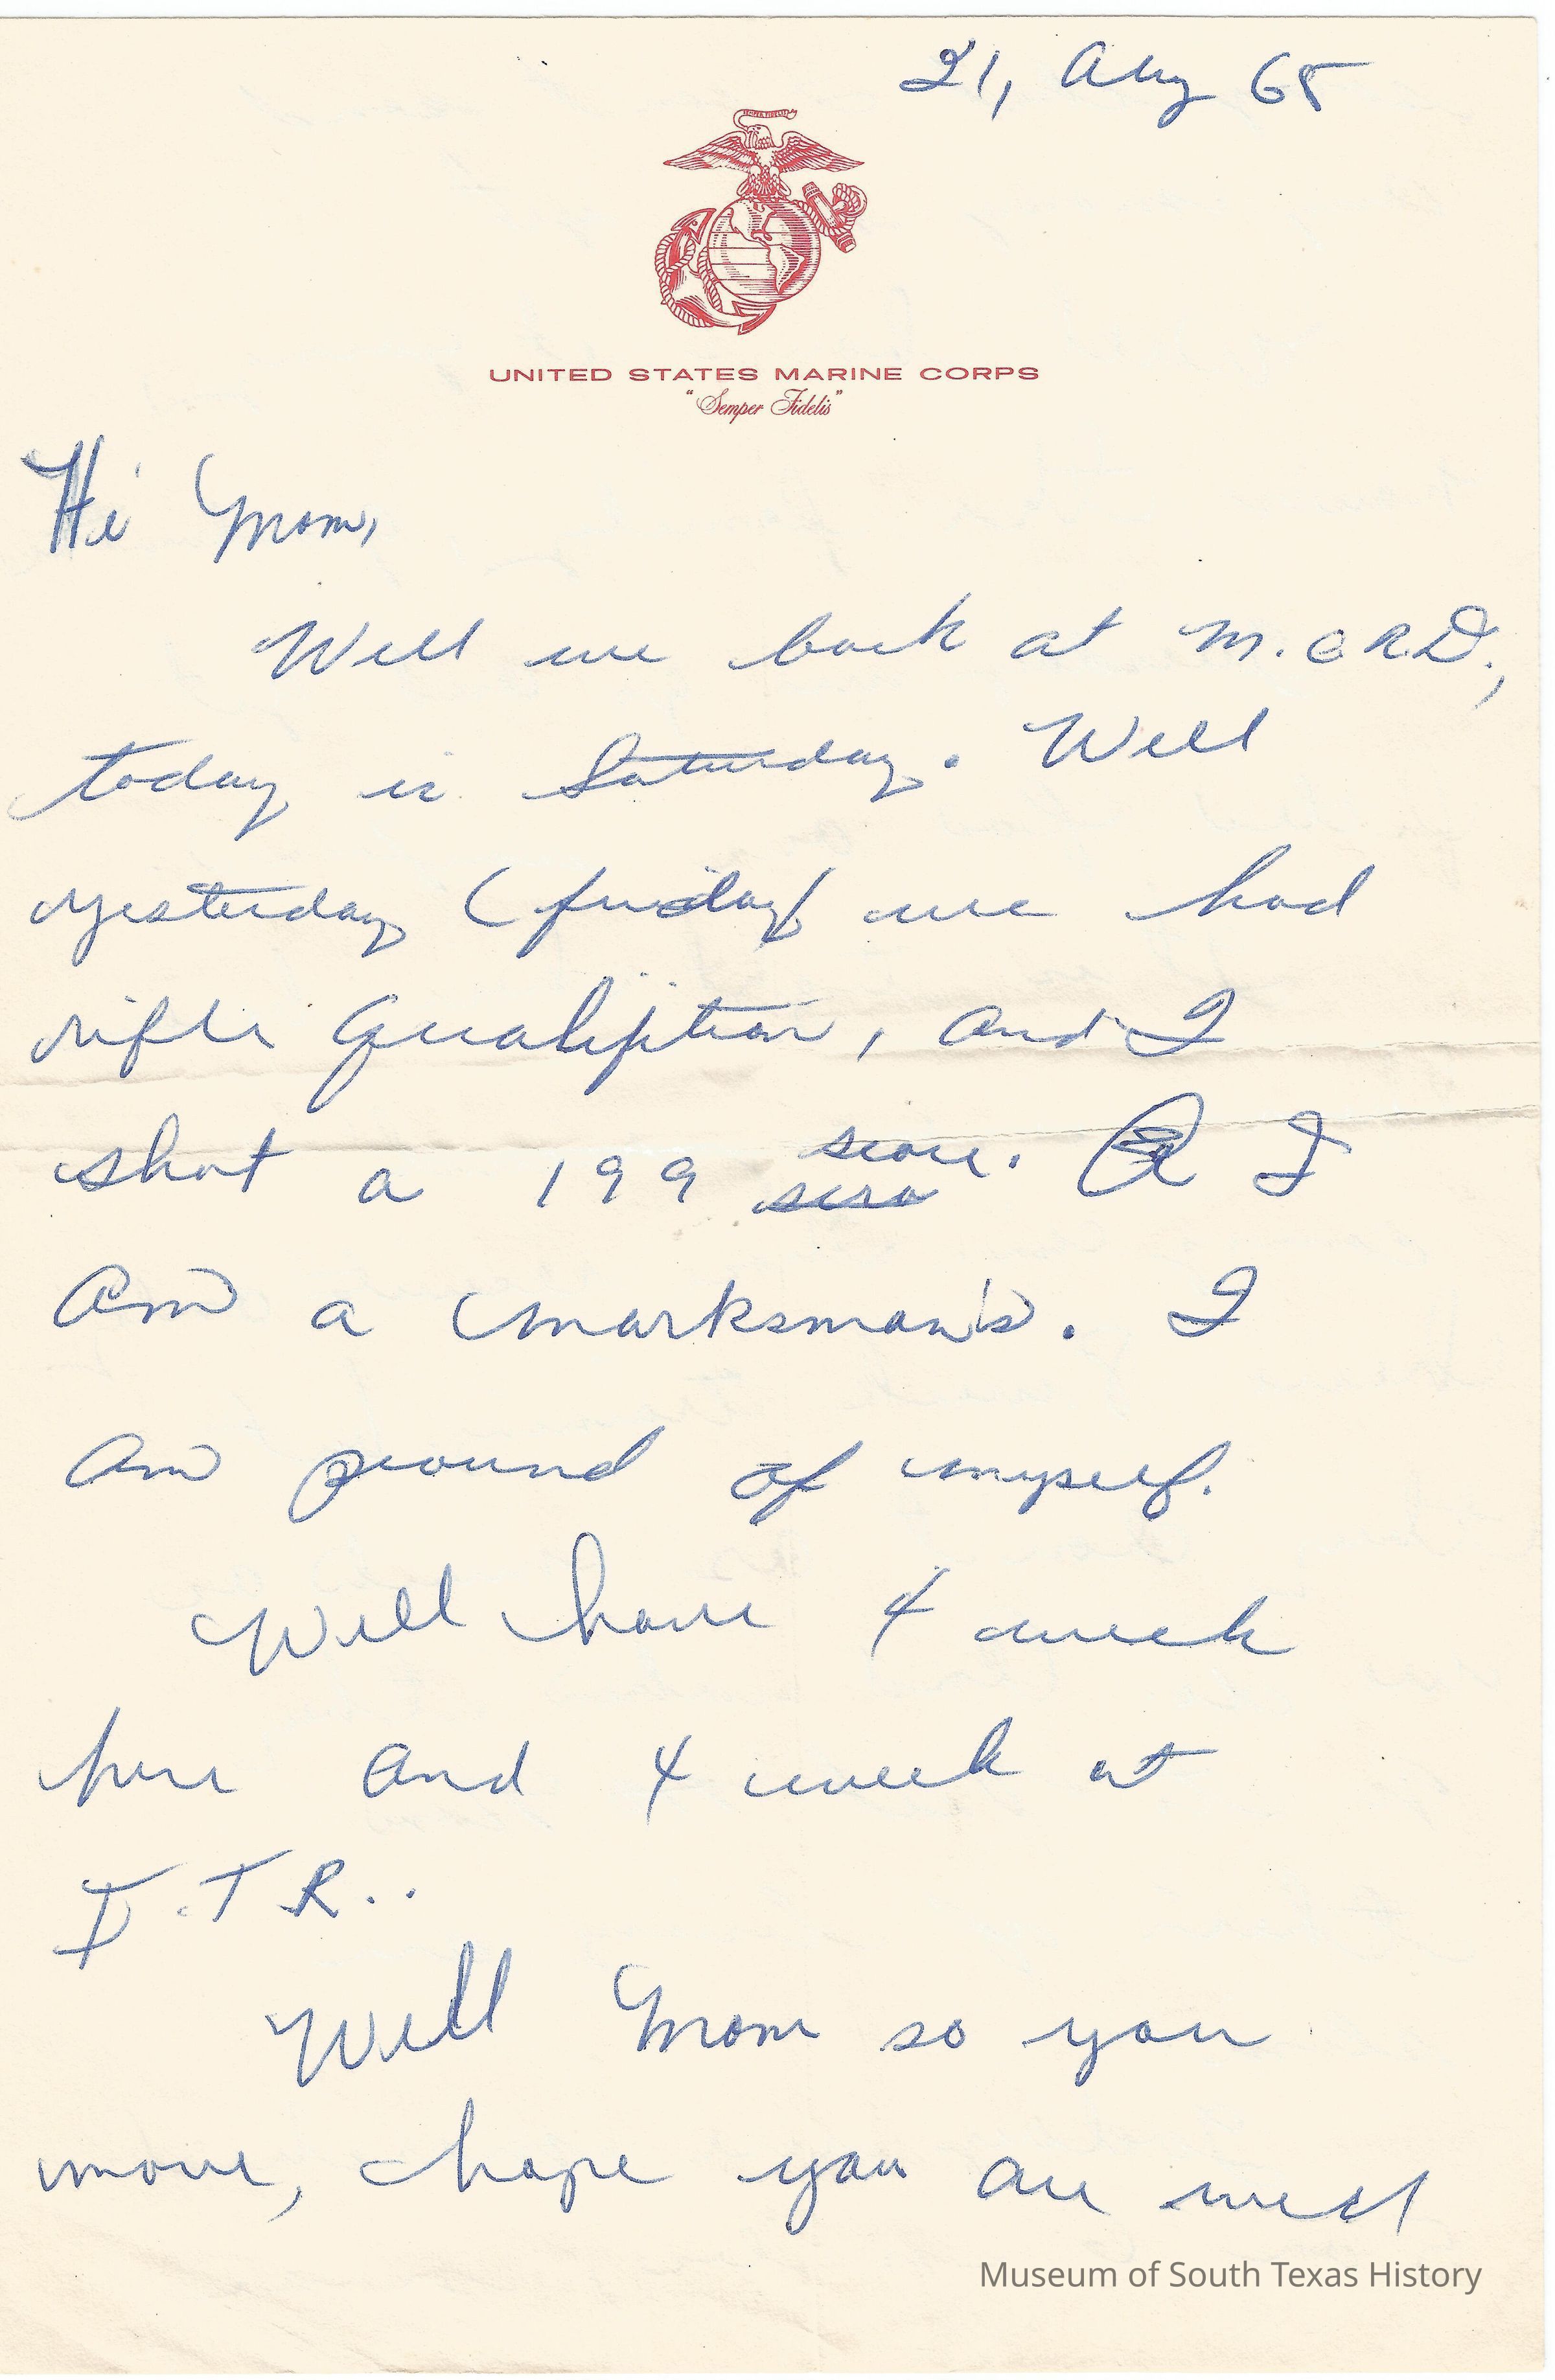 21, Aug 65
UNITED STATES MARINE CORPS
"Semper Fidelis"
Hi Mom,
Well we back at M.CRD.,
today is Saturday. Well
yesterday (friday) we had
rifle Qualiftion, and I
shot a 199 score. I
Am a marksman's. I
Am pround of myself.
Well have 4 week
here and 4 week at
I.T.R..
Well Mom so you
move, hope you are well
Museum of South Texas History